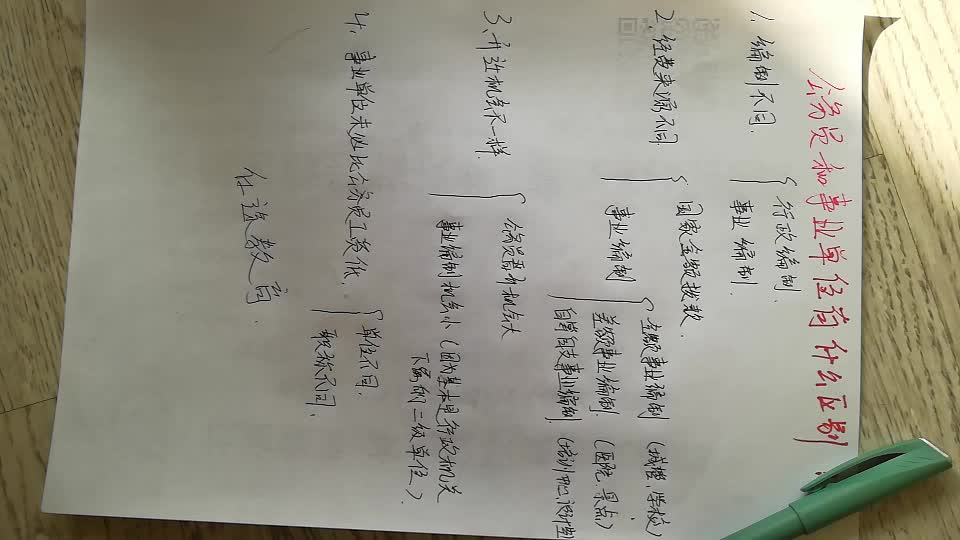 公务员和事业单位有什么区别?
1、编制不同.
行政编制.
事业编制.
2、经费来源不同
国家全额拨款.
事业编制
全额事业编制 (城管、学校)
差额事业编制. (医院、景点)
自营自支事业编制. (培训中心
3、升迁机会不一样.
公务员晋升机会大
事业编制机会小 (因为基本是行政机关
下属的二级单位).
4、事业单位未必比公务员工资低.
单位不同.
职称不同.
仕途教育.